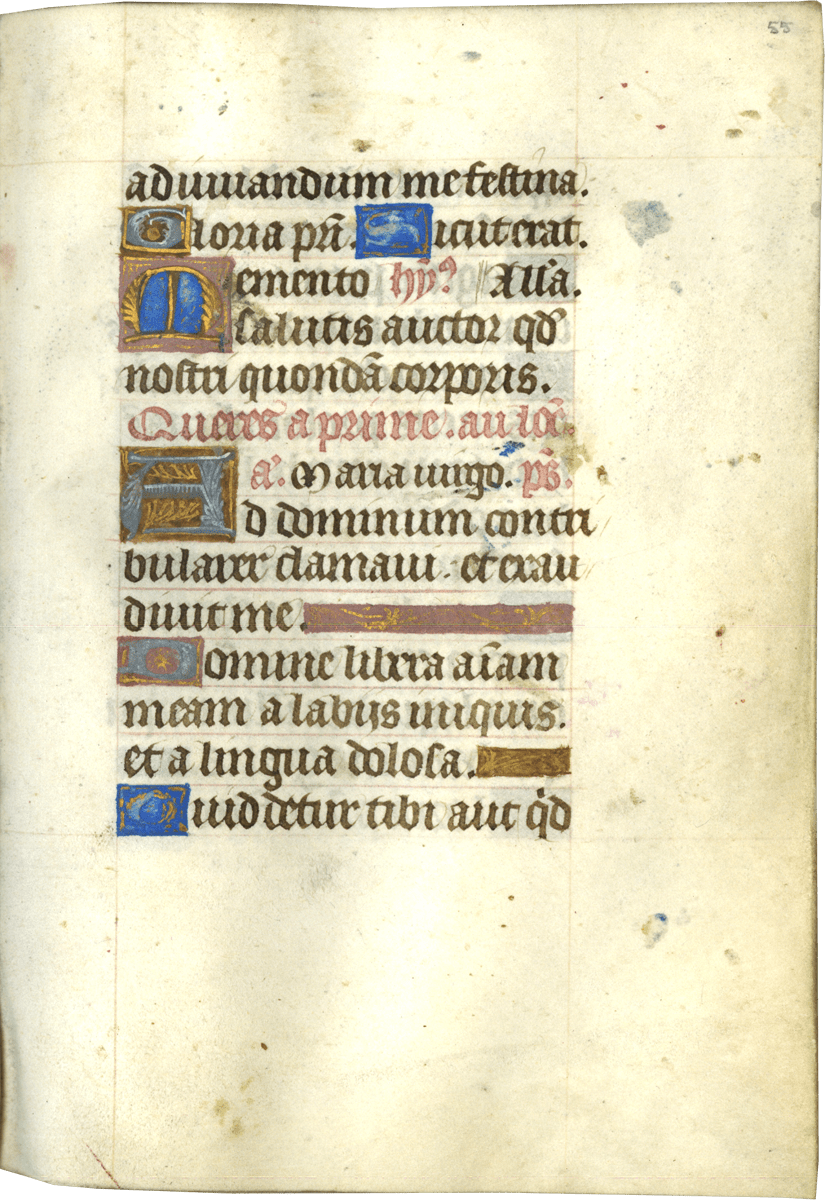 55
adiuuandum me festina.
Gloria pr̃i. Sicut erat.
emento hỹ⁹ All'a.
Msalutis auctor qd'
nostri quondã corporis.
Queres a prime. au loĩc.
a'. Maria uirgo. p̃s.
Ad dominum contri
bularer clamaui. et exau
diuit me.
Domine libera aĩam
meam a labijs iniquis.
et a lingua dolosa.
Quid detur tibi aut qͥd